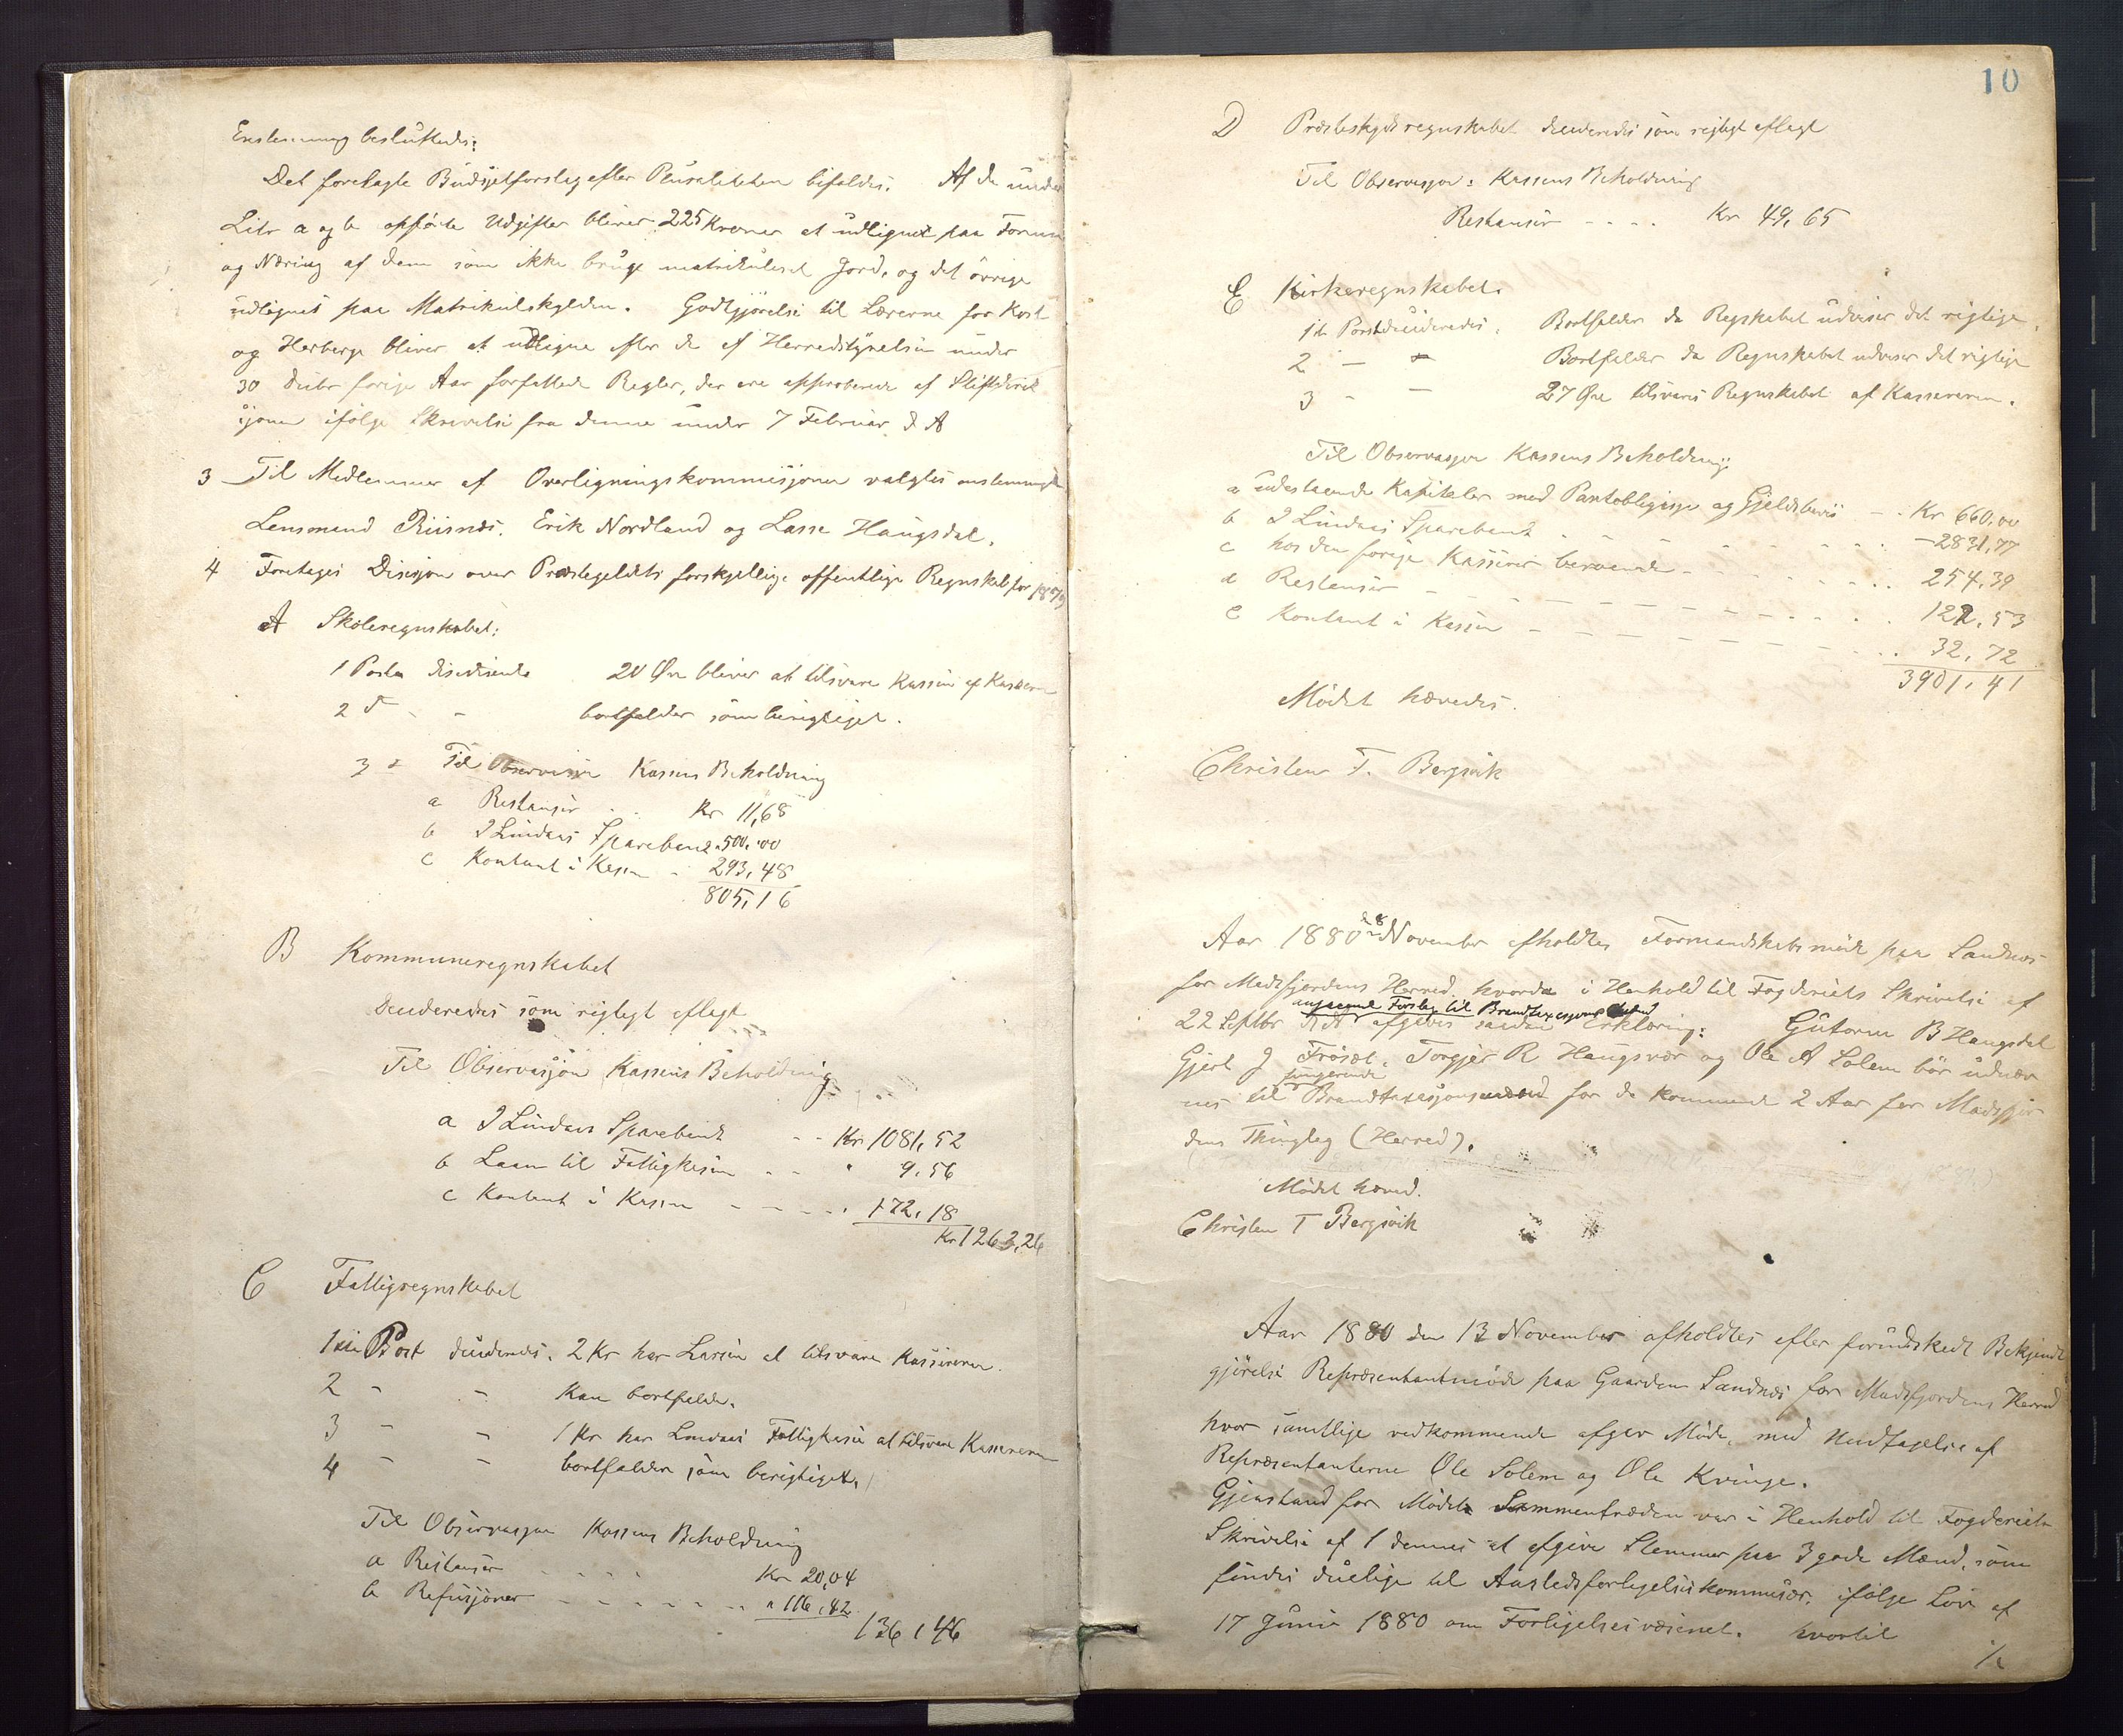 Enstemmig besluttedes:
Det forelagte Budsjetforslag efter Pluraliteten bifaldes. Af de under
Litr a og b opførte Udgifter bliver 225 Kroner at udligne paa Formue
og Næring af dem som ikke bruge matrikuleret Jord, og det øvrige
udlignes paa Matrikulskylden. Godtgjørelse til Lærerne for Kost
og Herberge bliver at udligne efter de af Herredstyrelsen under
30 Decbr forige Aar forfattede Regler, der ere approberede af Stiftdirek
sjonen ifølge Skrivelse fra denne under 7 Februar d A
3 Til Medlemmer af Overligningskommisjonen valgtes enstemmigt
Lensmand Risnes. Erik Nordland og Lasse Haugsdal.
4 Foretages Desisjon over Præstegjeldets forskjellige offentlige Regnskab for 1879
A Skoleregnskabet:
1 Post desideredes 20 Øre bliver at tilsvare Kassen af Kassereren
2 d - - bortfalder som berigtiget.
3 d Til Observasjon Kassens Beholdning
a Restanser . . Kr 11,68
b I Lindaas Sparebank " 500,00
c Kontant i Kassen - 293,48
805,16
B Kommuneregnskabet
Desideredes som rigtigt aflagt
Til Observasjon Kassens Beholdning
a I Lindaas Sparebank - - Kr 1081,52
b Laan til Fattigkassen - - " 9,56
c Kontant i Kassen - - - - . 172,18
Kr 1263,26
C Fattigregnskabet
1ste Post desideredes. 2 Kr har Larsen at tilsvare Kassereren.
2 - - Kan bortfalde.
3 - - 1 Kr har Lindaas Fattigkasse at tilsvare Kassereren
4 - - bortfalder som berigtiget.
Til Observasjon Kassens Beholdning
a Restanser - - - - Kr 20,04
b Refusjoner - - - - - - - " 116,42
136,46
10
D Præsteskydsregnskabet desideredes som rigtigt aflagt
Til Observasjon: Kassens Beholdning
Restanser - - - . Kr 49,65
E Kirkeregnskabet.
1te Post desideredes. Bortfalder da Regskabet udviser det rigtige.
2 - - Bortfalder da Regnskabet udviser det rigtige
3 - - 27 Øre tilsvares Regnskabet af Kassereren.
Til Observasjon Kassens Beholdning
a udestaaende Kapitaler mod Pantobligasjon og Gjeldsbevis - - Kr 660,00
b I Lindaas Sparebank - - - - - - - - - 2831,77
c hos den forige Kasserer beroende - - - - - - - . . 254,39
d Restanser - - - - - - - - - - - - . . 122,53
e Kontant i Kassen - - - - - - - - - . . . 32,72
3901,41
Mødet hævedes.
Christen T. Bergsvik
Aar 1880 d 8 November afholdtes Formandskabsmøde paa Sandnes
for Masfjordens Herred, hvorda i Henhold til Fogderiets Skrivelse af
angaaende Forslag til Brandtaxasjonsmænd
22 Septbr d A afgives saadan Erklæring: Gutorm B Haugsdal
Gjert J Frøset, Torgjer R Haugsvær og Ole A Solem bør udnæv
fungerende
nes til Brandtaxasjonsmænd for de kommende 2 Aar for Masfjor
dens Thinglag (Herred).
Mødet hæved.
Christen T Bergsvik
Aar 1880 den 13 November afholdtes efter forudskedt Bekjendt
gjørelse Repræsentantmøde paa Gaarden Sandnes for Masfjordens Herred
hvor samtlige vedkommende afgav Møde, med Undtagelse af
Repræsentanterne Ole Solem og Ole Kvinge.
Gjenstand for Mødets Sammentræden var i Henhold til Fogderiets
Skrivelse af 1 dennes at afgive Stemmer paa 3 gode Mænd, som
findes duelige til Forligelseskommisær. ifølge Lov af
17 Junie 1880 om Forligelsesvæsenet. hvortil